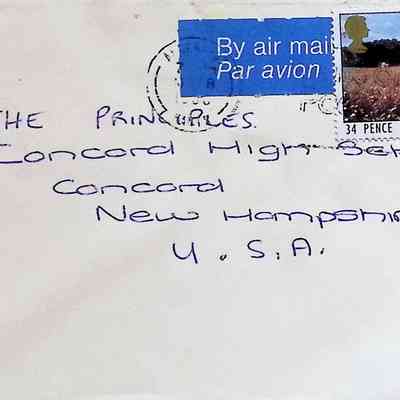 By air mail
Par avion
34 PENCE
THE PRINCIPLES.
Concord High Sch
Concord
New Hampshir
U.S.A.